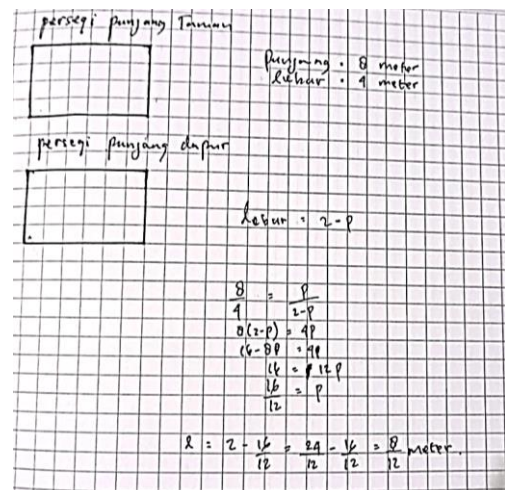 persegi panjang Taman
Panjang = 8 meter
lebar = 4 meter
persegi panjang dapur
lebar = 2-p
8/4 = p/2-p
8(2-p) = 4p
16-8p = 4p
16 = 12p
16/12 = p
l = 2 - 16/12 = 24/12 - 16/12 = 8/12 meter.